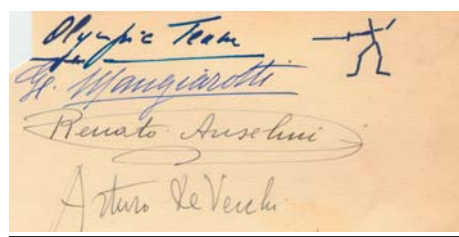 Olympic Team
Mangiarotti
Renato Anselmi
Arturo De Vecchi